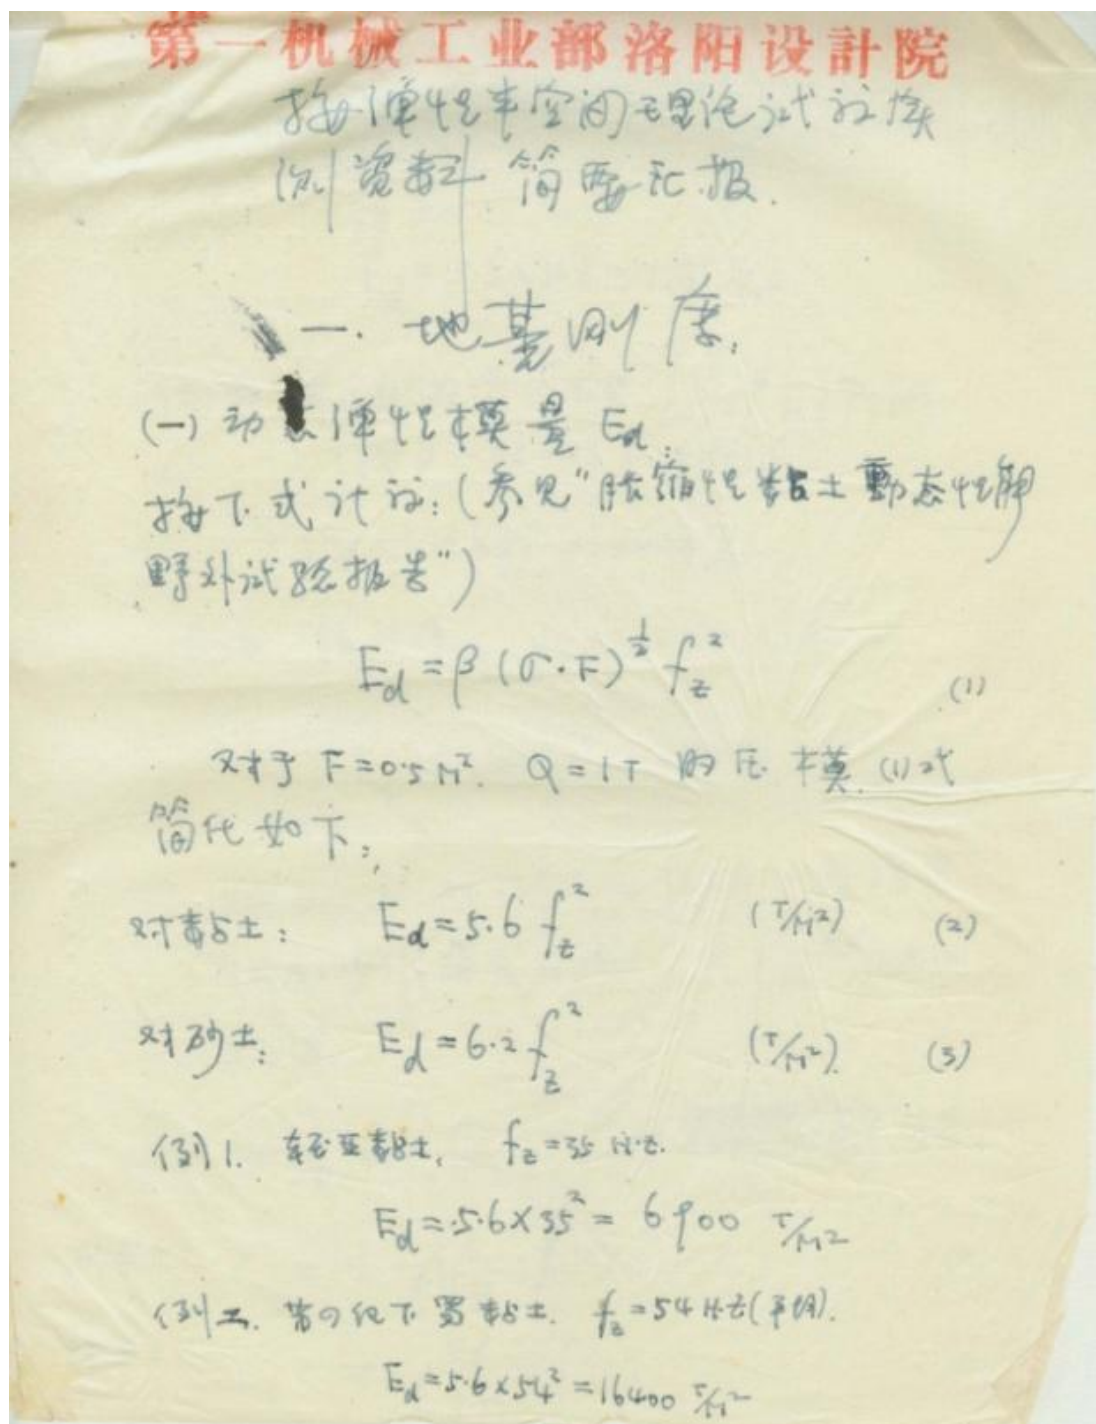 第一机械工业部洛阳设計院
按弹性半空间理论试验实
测资料 简要汇报.
一. 地基刚度.
(一) 动态弹性模量 Ed.
按下式计算: (参见"胀缩性黏土動态性能
野外试验报告")
Ed = β (σ·F)^½ fz² (1)
对于 F=0.5 M². Q=1T 的压模. (1)式
简化如下:
对黏土: Ed = 5.6 fz² (T/M²) (2)
对砂土: Ed = 6.2 fz² (T/M²). (3)
例1. 轻亚黏土, fz=35 Hz.
Ed = 5.6×35² = 6900 T/M²
例二. 第四纪下更黏土. fz=54Hz(平均).
Ed = 5.6×54² = 16400 T/M²